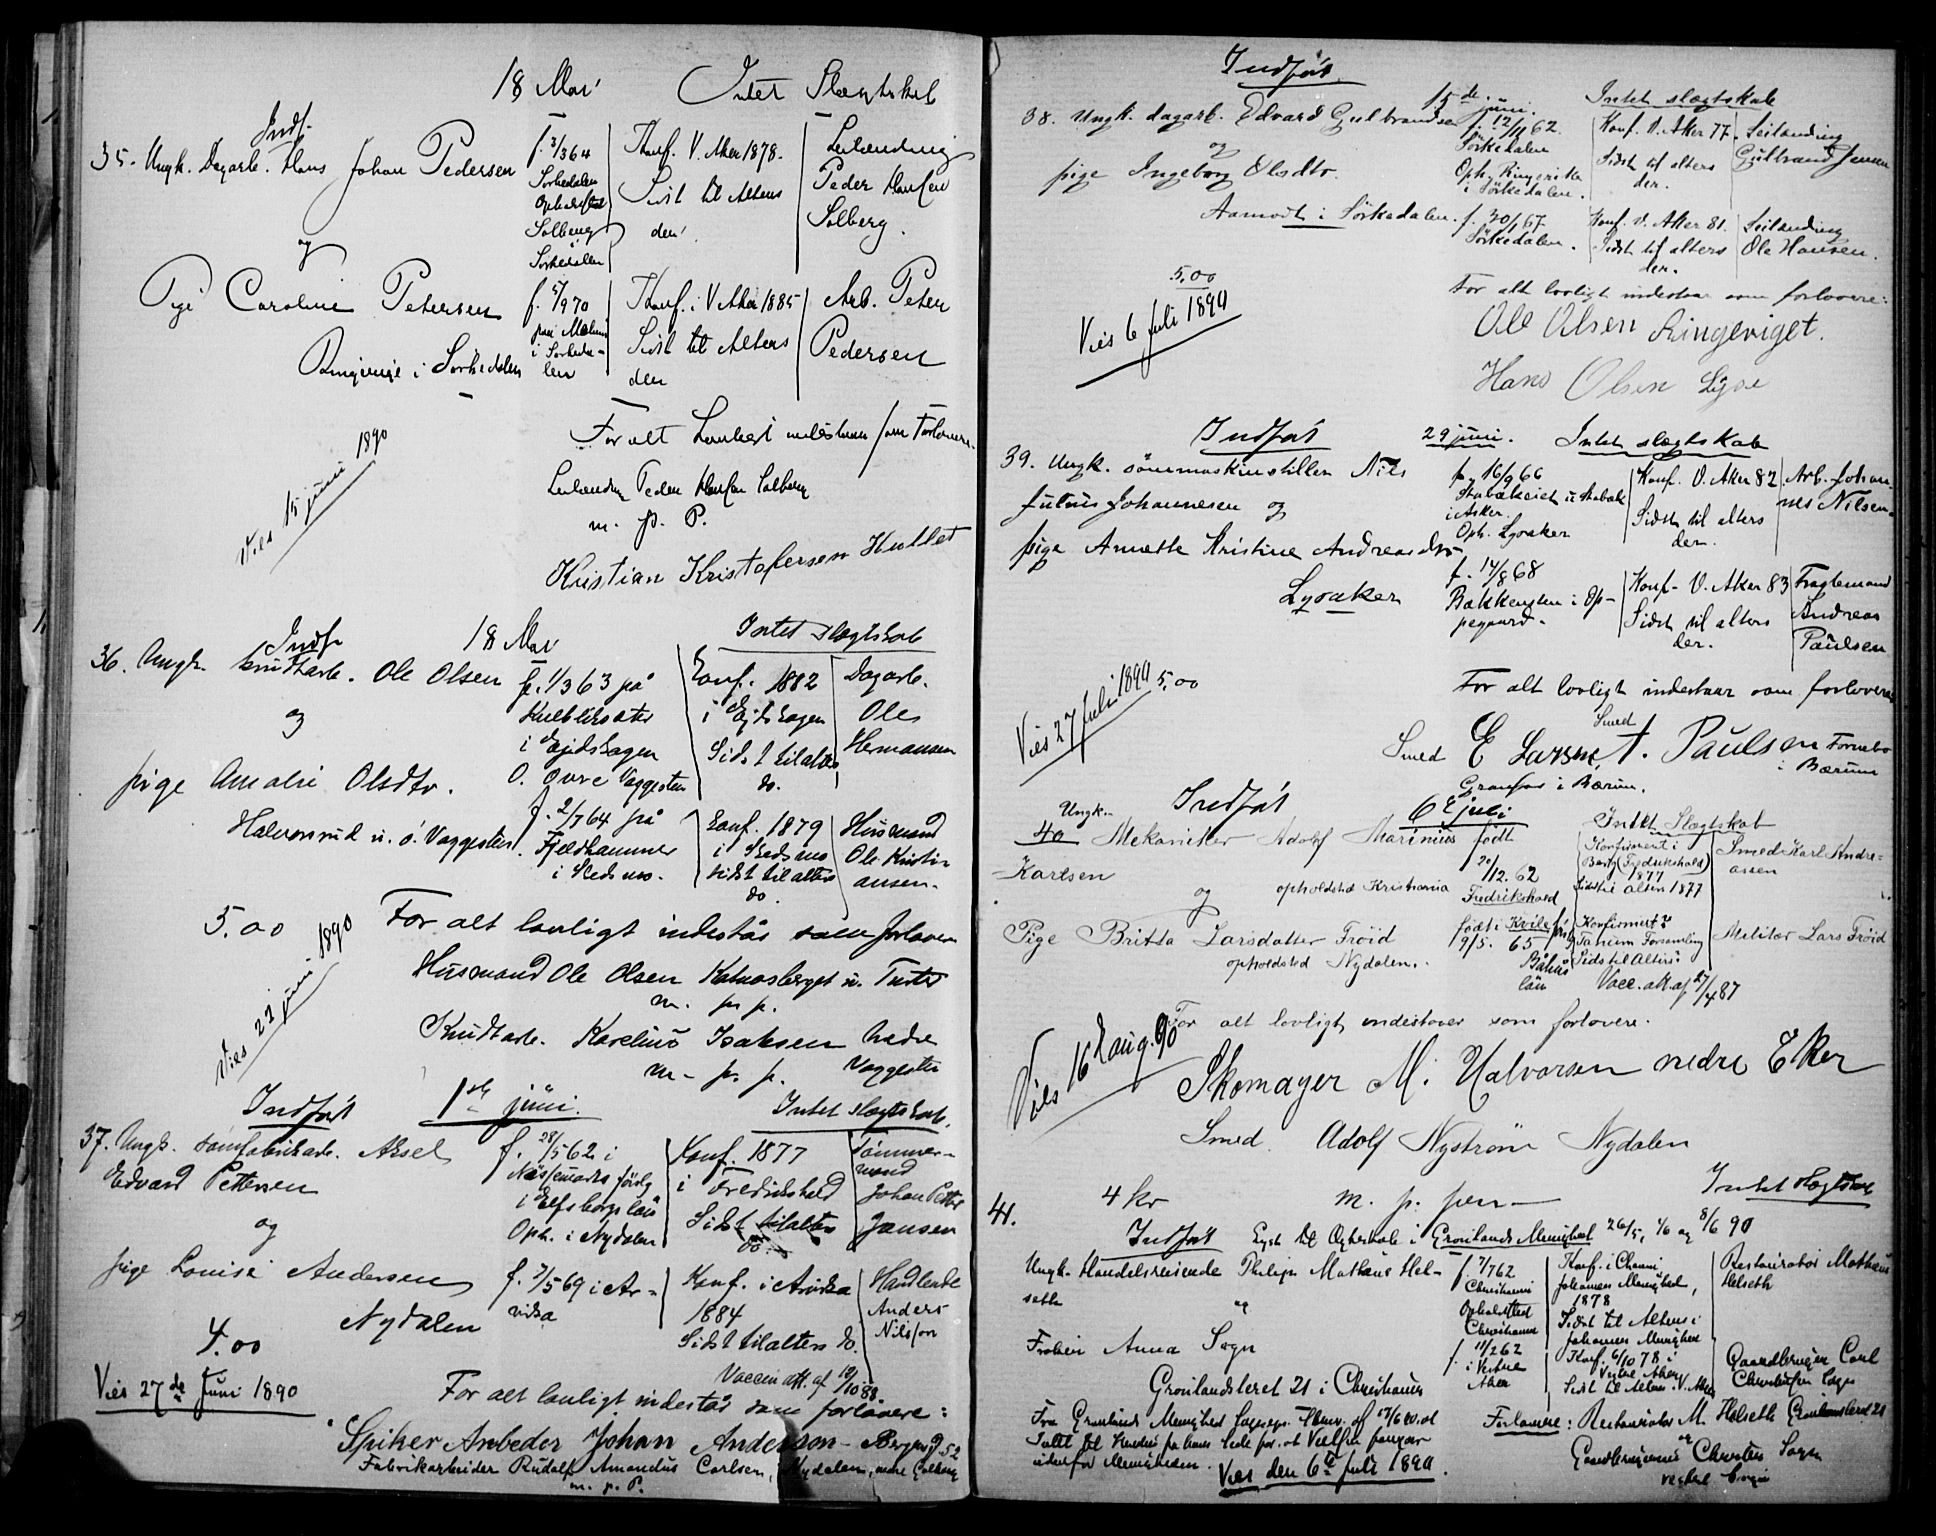 18 Mai Intet Slægtskab
Indf.
35. Ungk. Dagarb. Hans Johan Pedersen f. 3/3 64 Konf. V. Aker 1878. Leilænding
Sørkedalen Sidst til Alters Peder Hansen
Opholdssted den Solberg.
Solberg
og Sørkedalen
Pige Caroline Petersen f. 5/9 70 Konf. i V Aker 1885 Arb. Peter
paa i Sørkeda- Sidst til Alters Pedersen
i Sørkedalen len den
For alt Lovligt indestaar som Forlovere
Leilænding Peder Hansen Solberg
m. p. P.
Kristian Kristofersen Hullet
Vies 15 juni 1890
Indf. 18 Mai Intet slægtskab
36. Ungk. krudtarb. Ole Olsen f. 1/3 63 på Konf. 1882 Dagarb.
og i Ejdskogen Ole
i Ejdskogen Sidst til alters Hermansen
O. øvre Vaggesten do.
pige Amalie Olsdtr. f. 2/7 64 på Konf. 1879 Husmand
Halvorsrud u. ø. Vaggesten. Fjeldhammer i Skedsmo Ole Kristi-
i Skedsmo. sidst til alters ansen.
do.
5.00 For alt lovligt indestås som forlovere
Husmand Ole Olsen u.
m. p. p.
Krudtarb. Karelius Isaksen nedre
m. p. p. Vaggesten
Vies 22 juni 1890
Indført 1ste juni. Intet slægtskab.
37. Ungk. sømfabrikarb. Aksel f. 28/5 62 i Konf. 1877 Tømmer-
Edvard Pettersen i Fredrikshald mand
i Elfsborgs län Sidst til alters Johan Petter
og Oph. i Nydalen do. Jansen
pige Louise Andersen f. 7/5 69 i Ar- Konf. i Arvika Handlende
Nydalen vika 1884 Anders
4.00 Sidst til alters do. Nilsson
Vaccin att. af 19/10 83.
Vies 27de Juni 1890
For alt lovligt indestås som forlovere:
Spiker Arbeder Johan Anderson - Bergsd 52
Fabrikarbeider Rudolf Amandus Carlsen, Nydalen, nedre
m. p. P.
Indført 15de juni. Intet slægtskab
38. Ungk. dagarb. Edvard Gulbrandsen f. 12/11 62. Konf. V. Aker 77 Leilænding
og Sørkedalen Sidst til alters Gulbrand Jensen
pige Ingeborg Olsdtr. Oph. Ringerike der.
i Sørkedalen.
Aamodt i Sørkedalen. f. 30/1 67 Konf. V. Aker 81. Leilænding
Sørkedalen. Sidst til alters Ole Hansen.
der.
5.00 For alt lovligt indestaar som forlovere:
Vies 6 Juli 1890
Ole Olsen Ringeriget.
Hans Olsen Lysae
Indført 29 juni. Intet slægtskab
39. Ungk. sømmaskinstiller Nils f. 16/9 66 Konf. V. Aker 82 Arb. Johan-
Julius Johannesen og Stabækeiet u. Stabæk Sidst til alters nes Nilsen.
i Asker. der.
Oph. Lysaker
pige Annette Kristine Andreasdtr f. 14/8 68 Konf. V. Aker 83 Fragtemand
Lysaker Bækkensten i Op- Sidst til alters Andreas
pegaard. der. Paulsen
5.00 For alt lovligt indestaar som forlovere
Vies 27 Juli 1890
Smed E Larsen Smed A. Paulsen Fornebo
Granfos i Bærum. i Bærum
Indført 6te juli Intet Slægtskab
Ungk.
40 Mekaniker Adolf Marinius født Konfirmert i Smed Karl Andre-
Karlsen 20/12. 62 Berg (Fredrikshald) assen
og opholdsted Kristiania Fredrikshald 1877
Sidst til alters 1877
Pige Britta Larsdatter Fröid født i Kville Konfirmert i Militær Lars Fröid
opholdsted Nydalen. 9/5. 65 Tanum Forsamling
Båhus Sidst til Alters:
län Vacc. att. af 27/4 87
For alt lovligt indestaaer som forlovere.
Vies 16de aug. 90
Skomager M. Halvorsen nedre Eker
Smed Adolf Nystrøm Nydalen
4 kr m. p. pen Intet slægtskab
41. Indført Lyst til Ægteskab i Grønlands Menighed 26/5, 1/6 og 8/6 90
Ungk. Handelsreisende Philip Mathæus Hel- f. 7/7 62 Konf. i Christi Restauratør Mathæus
seth Christiania Johannes Menighed, Helseth
og Opholdssted 1878
Christiania Sidst til Alters i
Johannes Menighed
Frøken Anna Sogn f. 11/2 62 Konf. 6/10 78 i Gaardbruger Carl
i Vestre Vestre Aker Christensen Sogn
Grønlandsleret 21 i Christiania Aker Sidst til Alters i V. Aker
Fra Grønlands Menighed af 17/6 90, at Forlovere: Restauratør M. Helseth Grønlandsleret 21
Intet til Hinder fra hans Side for, at Vielsen foregaar og
udenfor Menigheden. Gaardbruger Christen Sogn
Vies den 6te Juli 1890. vestre Sogn